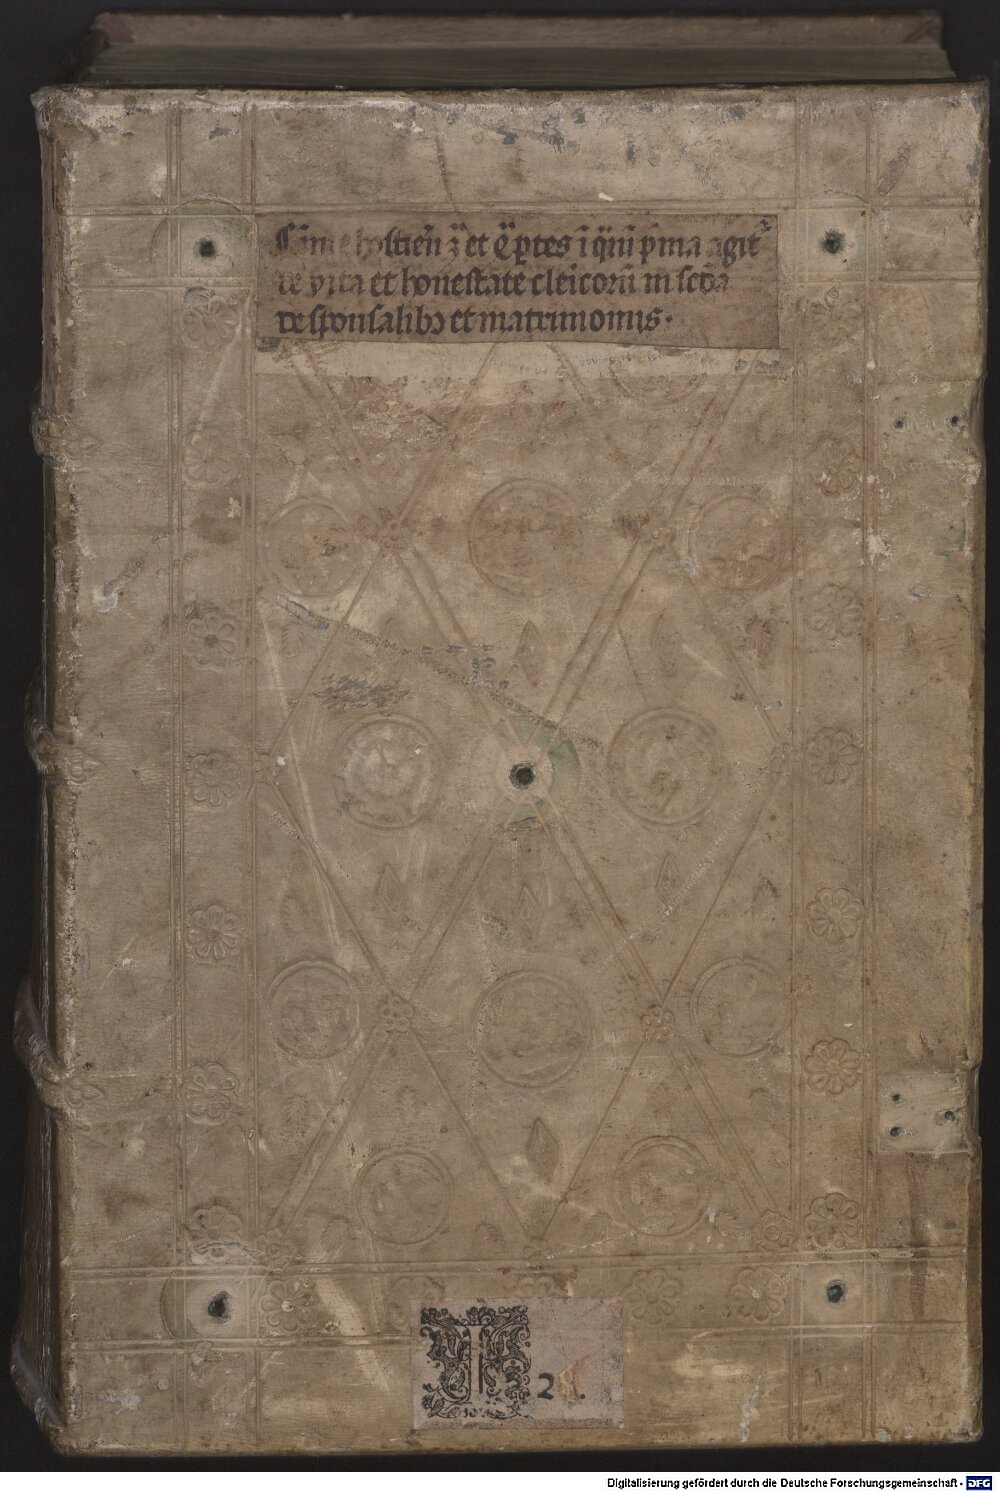 et q̃ptes ĩ q̃rũ p̃ma agit᷑
de vita et honestate cleĩcorũ in scd̃a
de sponsalibꝫ et matrimoniis·
I
22
Digitalisierung gefördert durch die Deutsche Forschungsgemeinschaft - DFG